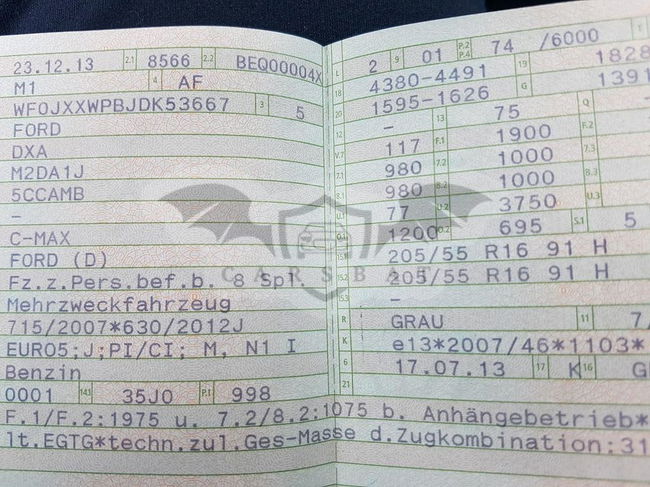 23.12.13 2.1 8566 2.2 BEQ00004X
M1 4 AF
WF0JXXWPBJDK53667 3 5
FORD
DXA
M2DA1J
5CCAMB
-
C-MAX
FORD (D)
Fz.z.Pers.bef.b. 8 Spl.
Mehrzweckfahrzeug
715/2007*630/2012J
EURO5;J;PI/CI; M, N1 I
Benzin
0001 14.1 35J0 P.1 998
L 2 9 01 P.2 P.4 74 /6000
18 4380-4491 19 1828
19 1595-1626 G 1391
20 - 13 75 Q
V.7 117 F.1 1900 F.2
7.1 980 7.2 1000 7.3
8.1 980 8.2 1000 8.3
U.1 77 U.2 3750 U.3
O.1 1200 O.2 695 S.1 5
15.1 205/55 R16 91 H
15.2 205/55 R16 91 H
15.3 -
R GRAU 11 7/
K e13*2007/46*1103*
6 17.07.13 17 K 16
21
F.1/F.2:1975 u. 7.2/8.2:1075 b. Anhängebetrieb*
lt.EGTG*techn.zul.Ges-Masse d.Zugkombination:31
CARSBAT